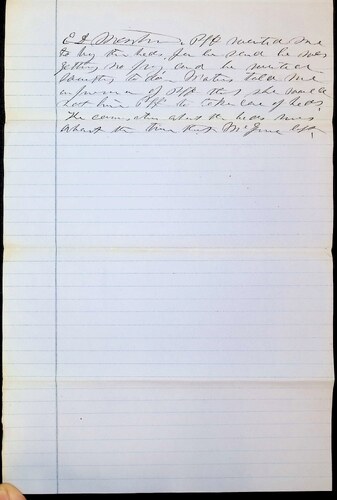 E D Martin Plff wanted me
to buy the beds. for he said he was
getting no pay and he wanted
to do. Waters told me
in presence of Plff that she would
let him Plff to take care of beds.
The conversation about the beds was
about the time that McGrue left